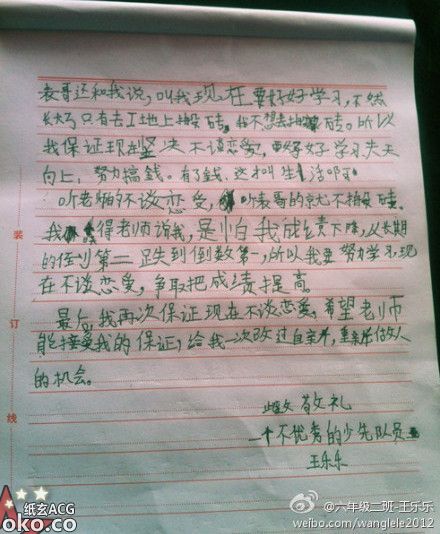 表哥还和我说，叫我现在要好好学习，不然
长大了只有去工地上搬砖，我不想去搬砖。所以
我保证现在坚决不谈恋爱，要好好学习天天
向上，努力搞钱。有了钱，这才叫生活啊
听老师的不谈恋爱，听表哥的就不搬砖。
我觉得老师说我，是怕我成绩下降，从长期
的倒数第二跌到倒数第一，所以我要努力学习，现
在不谈恋爱，争取把成绩提高。
最后，我再次保证现在不谈恋爱，希望老师
能接受我的保证，给我一次改过自新，重新做人
的机会。
此致敬礼
一个不优秀的少先队员
王乐乐
装
订
线
纸玄ACG
oko.co
@六年级二班-王乐乐
weibo.com/wanglele2012